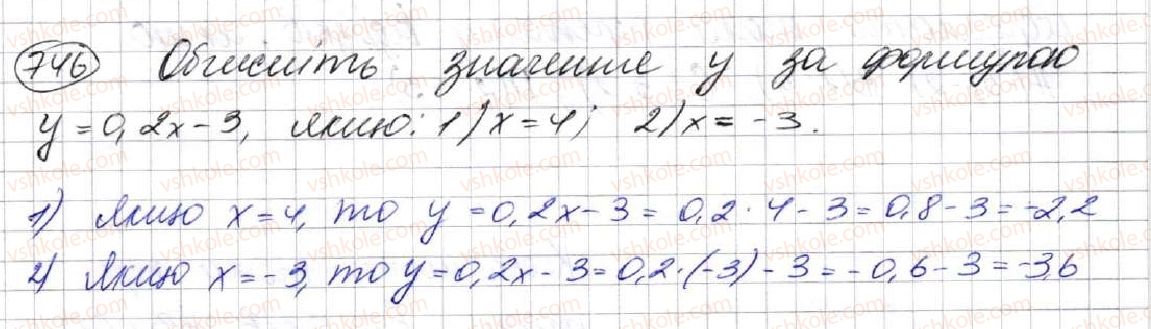 746 Обчисліть значення y за формулою
y = 0,2x - 3, якщо: 1) x = 4; 2) x = -3.
1) Якщо x = 4, то y = 0,2x - 3 = 0,2 · 4 - 3 = 0,8 - 3 = -2,2
2) Якщо x = -3, то y = 0,2x - 3 = 0,2 · (-3) - 3 = -0,6 - 3 = -3,6